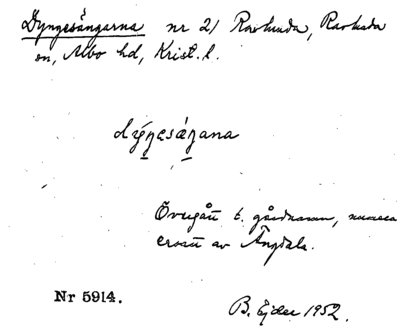 Dyngesängarna nr 21 Ravlunda, Ravlunda
sn, Albo hd, Krist. l.
dýŋesæŋana
Övergått t. gårdnamn, numera
ersatt av Ängdala.
Nr 5914.
B. Ejder 1952.